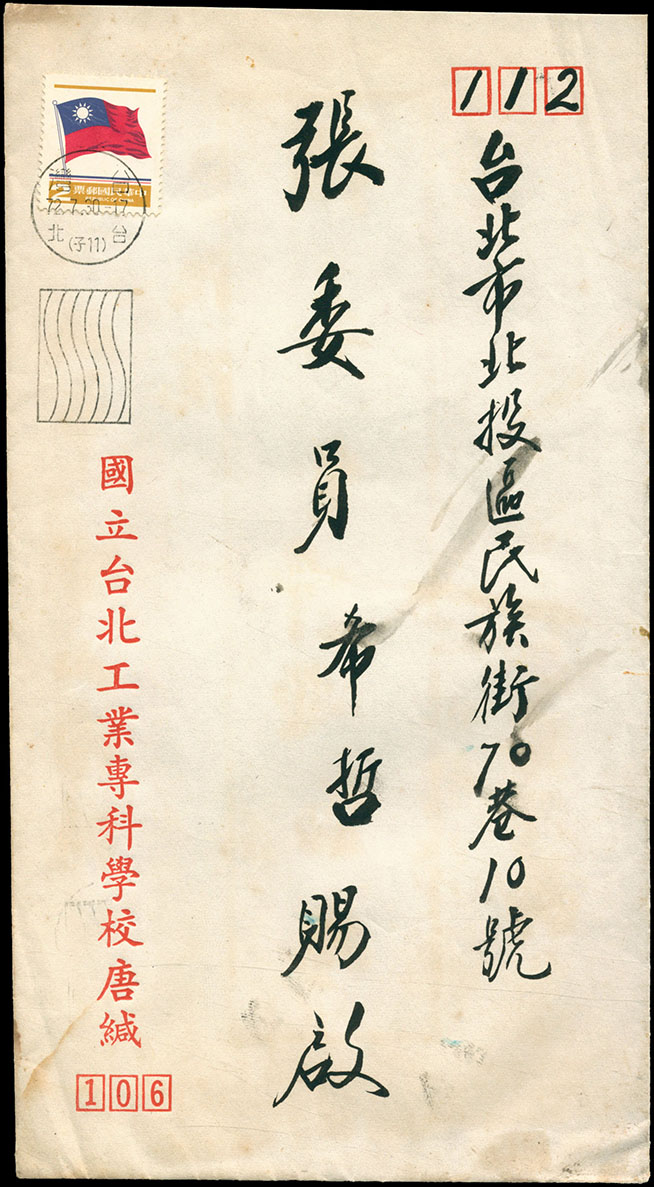 112
台北市北投區民族街70巷10號
張委員希哲賜啟
中華民國郵票
2
72.7.30.-17
台北
(子11)
國立台北工業專科學校唐緘
106